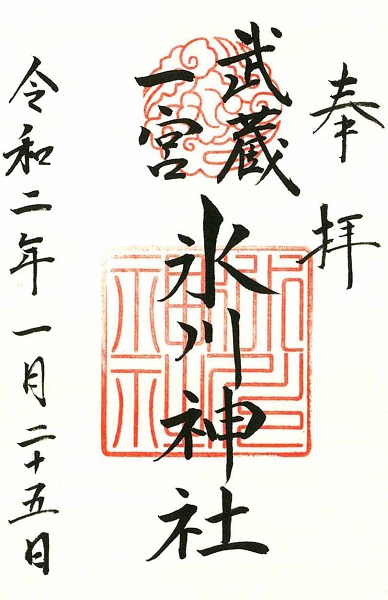 奉拝
武蔵
一宮
氷川神社
令和二年一月二十五日